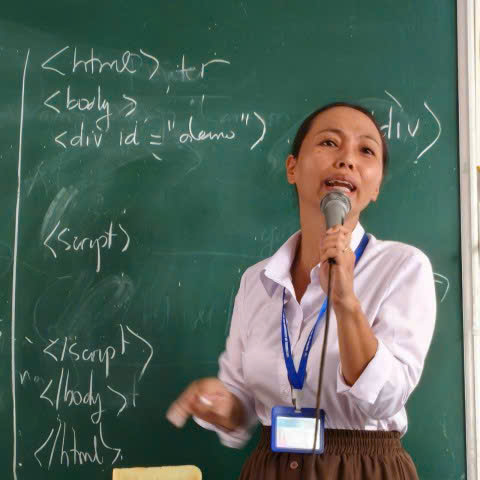 <html>
<body>
<div id="demo">
div>
<script>
</script>
</body>
</html>